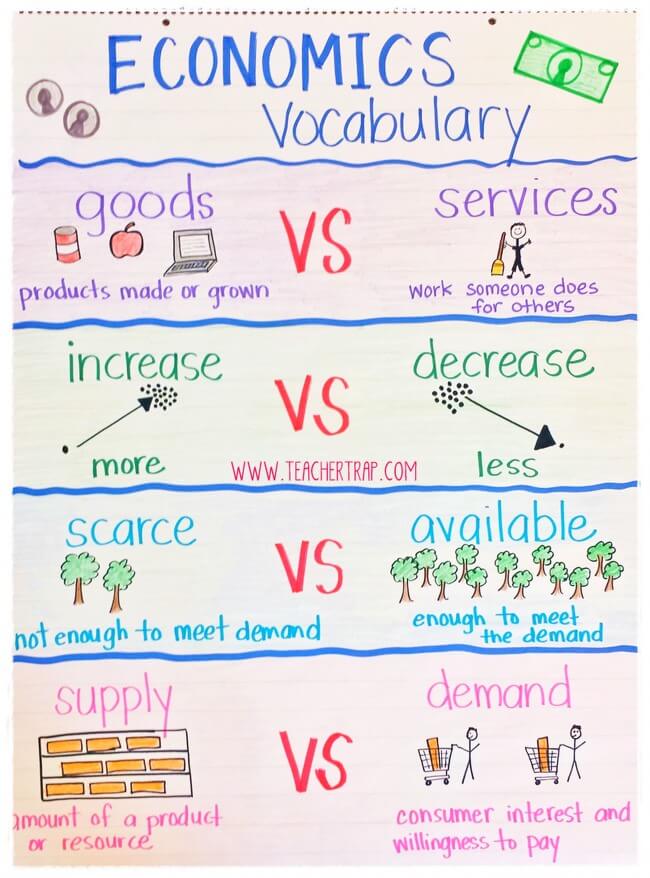 ECONOMICS
Vocabulary
goods
VS
services
products made or grown
work someone does
for others
increase
VS
decrease
more
WWW.TEACHERTRAP.COM
less
scarce
VS
available
not enough to meet demand
enough to meet
the demand
supply
VS
demand
amount of a product
or resource
consumer interest and
willingness to pay